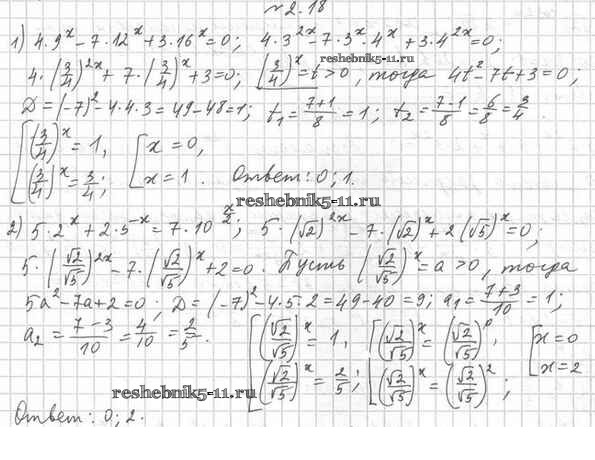 №2.18
1) 4·9^x − 7·12^x + 3·16^x = 0; 4·3^{2x} − 7·3^x·4^x + 3·4^{2x} = 0;
4·(3/4)^{2x} + 7·(3/4)^x + 3 = 0; (3/4)^x = t > 0, тогда 4t² − 7t + 3 = 0;
D = (−7)² − 4·4·3 = 49 − 48 = 1; t₁ = (7+1)/8 = 1; t₂ = (7−1)/8 = 6/8 = 3/4.
[(3/4)^x = 1, [x = 0,
[(3/4)^x = 3/4; [x = 1. Ответ: 0; 1.
reshebnik5-11.ru
2) 5·2^x + 2·5^{−x} = 7·10^{x/2}; 5·(√2)^{2x} − 7·(√2)^x + 2(√5)^x = 0;
5·(√2/√5)^{2x} − 7·(√2/√5)^x + 2 = 0. Пусть (√2/√5)^x = a > 0, тогда
5a² − 7a + 2 = 0; D = (−7)² − 4·5·2 = 49 − 40 = 9; a₁ = (7+3)/10 = 1;
a₂ = (7−3)/10 = 4/10 = 2/5. [(√2/√5)^x = 1, [(√2/√5)^x = (√2/√5)^0, [x = 0
[(√2/√5)^x = 2/5; [(√2/√5)^x = (√2/√5)^2; [x = 2
reshebnik5-11.ru
Ответ: 0; 2.